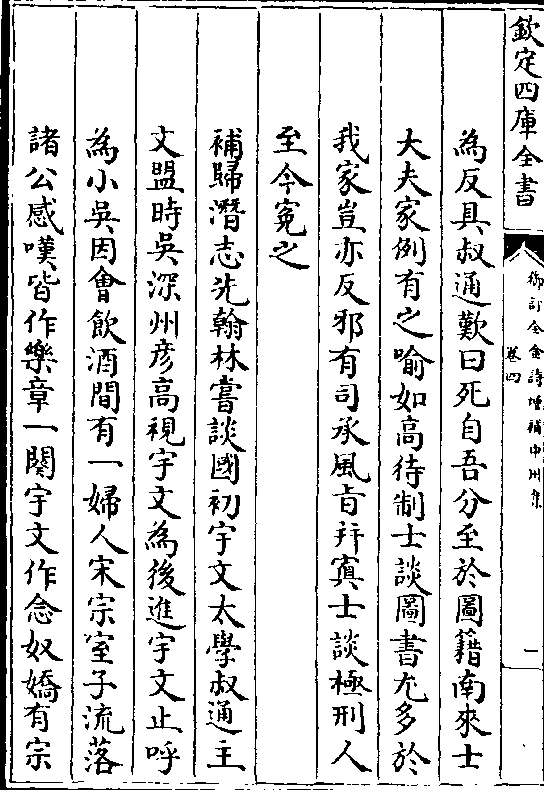 欽定四庫全書
御訂全金詩增補中州集
卷四
一
為反具叔通歎曰死自吾分至於圖籍南來士
大夫家例有之喻如高待制士談圖書尤多於
我家豈亦反邪有司承風旨并寘士談極刑人
至今寃之
補歸潛志先翰林嘗談國初宇文太學叔通主
文盟時吳深州彦高視宇文為後進宇文止呼
為小吳因會飲酒間有一婦人宋宗室子流落
諸公感嘆皆作樂章一闋宇文作念奴嬌有宗